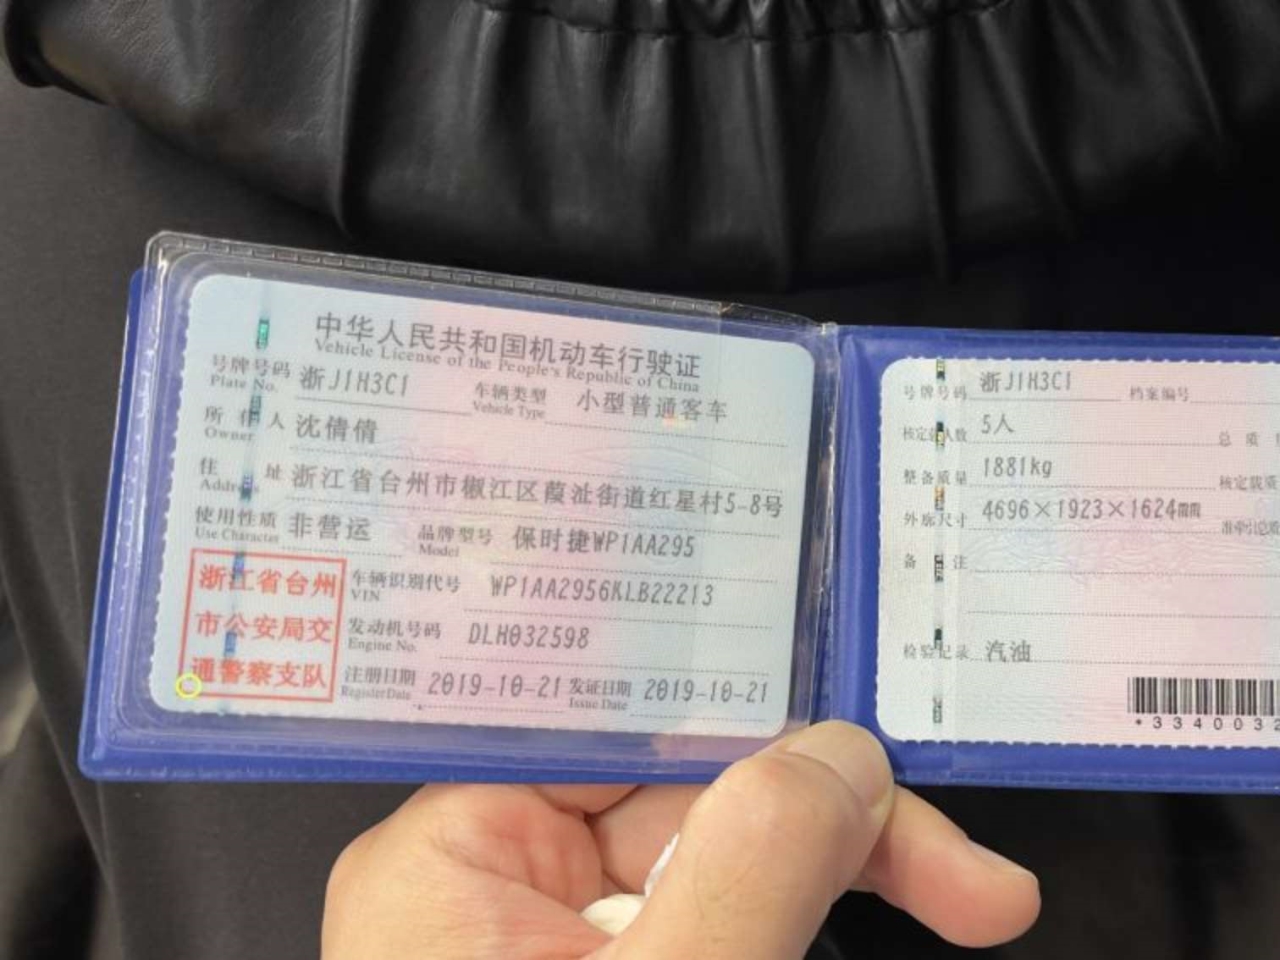 中华人民共和国机动车行驶证
Vehicle License of the People's Republic of China
号牌号码 浙J1H3C1 车辆类型 小型普通客车
Plate No. Vehicle Type
所有人 沈倩倩
Owner
住址 浙江省台州市椒江区葭沚街道红星村5-8号
Address
使用性质 非营运 品牌型号 保时捷WP1AA295
Use Character Model
浙江省台州
市公安局交
通警察支队
车辆识别代号 WP1AA2956KLB22213
VIN
发动机号码 DLH032598
Engine No.
注册日期 2019-10-21 发证日期 2019-10-21
Register Date Issue Date
号牌号码 浙J1H3C1 档案编号
核定载人数 5人 总质
整备质量 1881kg 核定载质
外廓尺寸 4696×1923×1624mm 准牵引总质
备注
检验记录 汽油
*334003